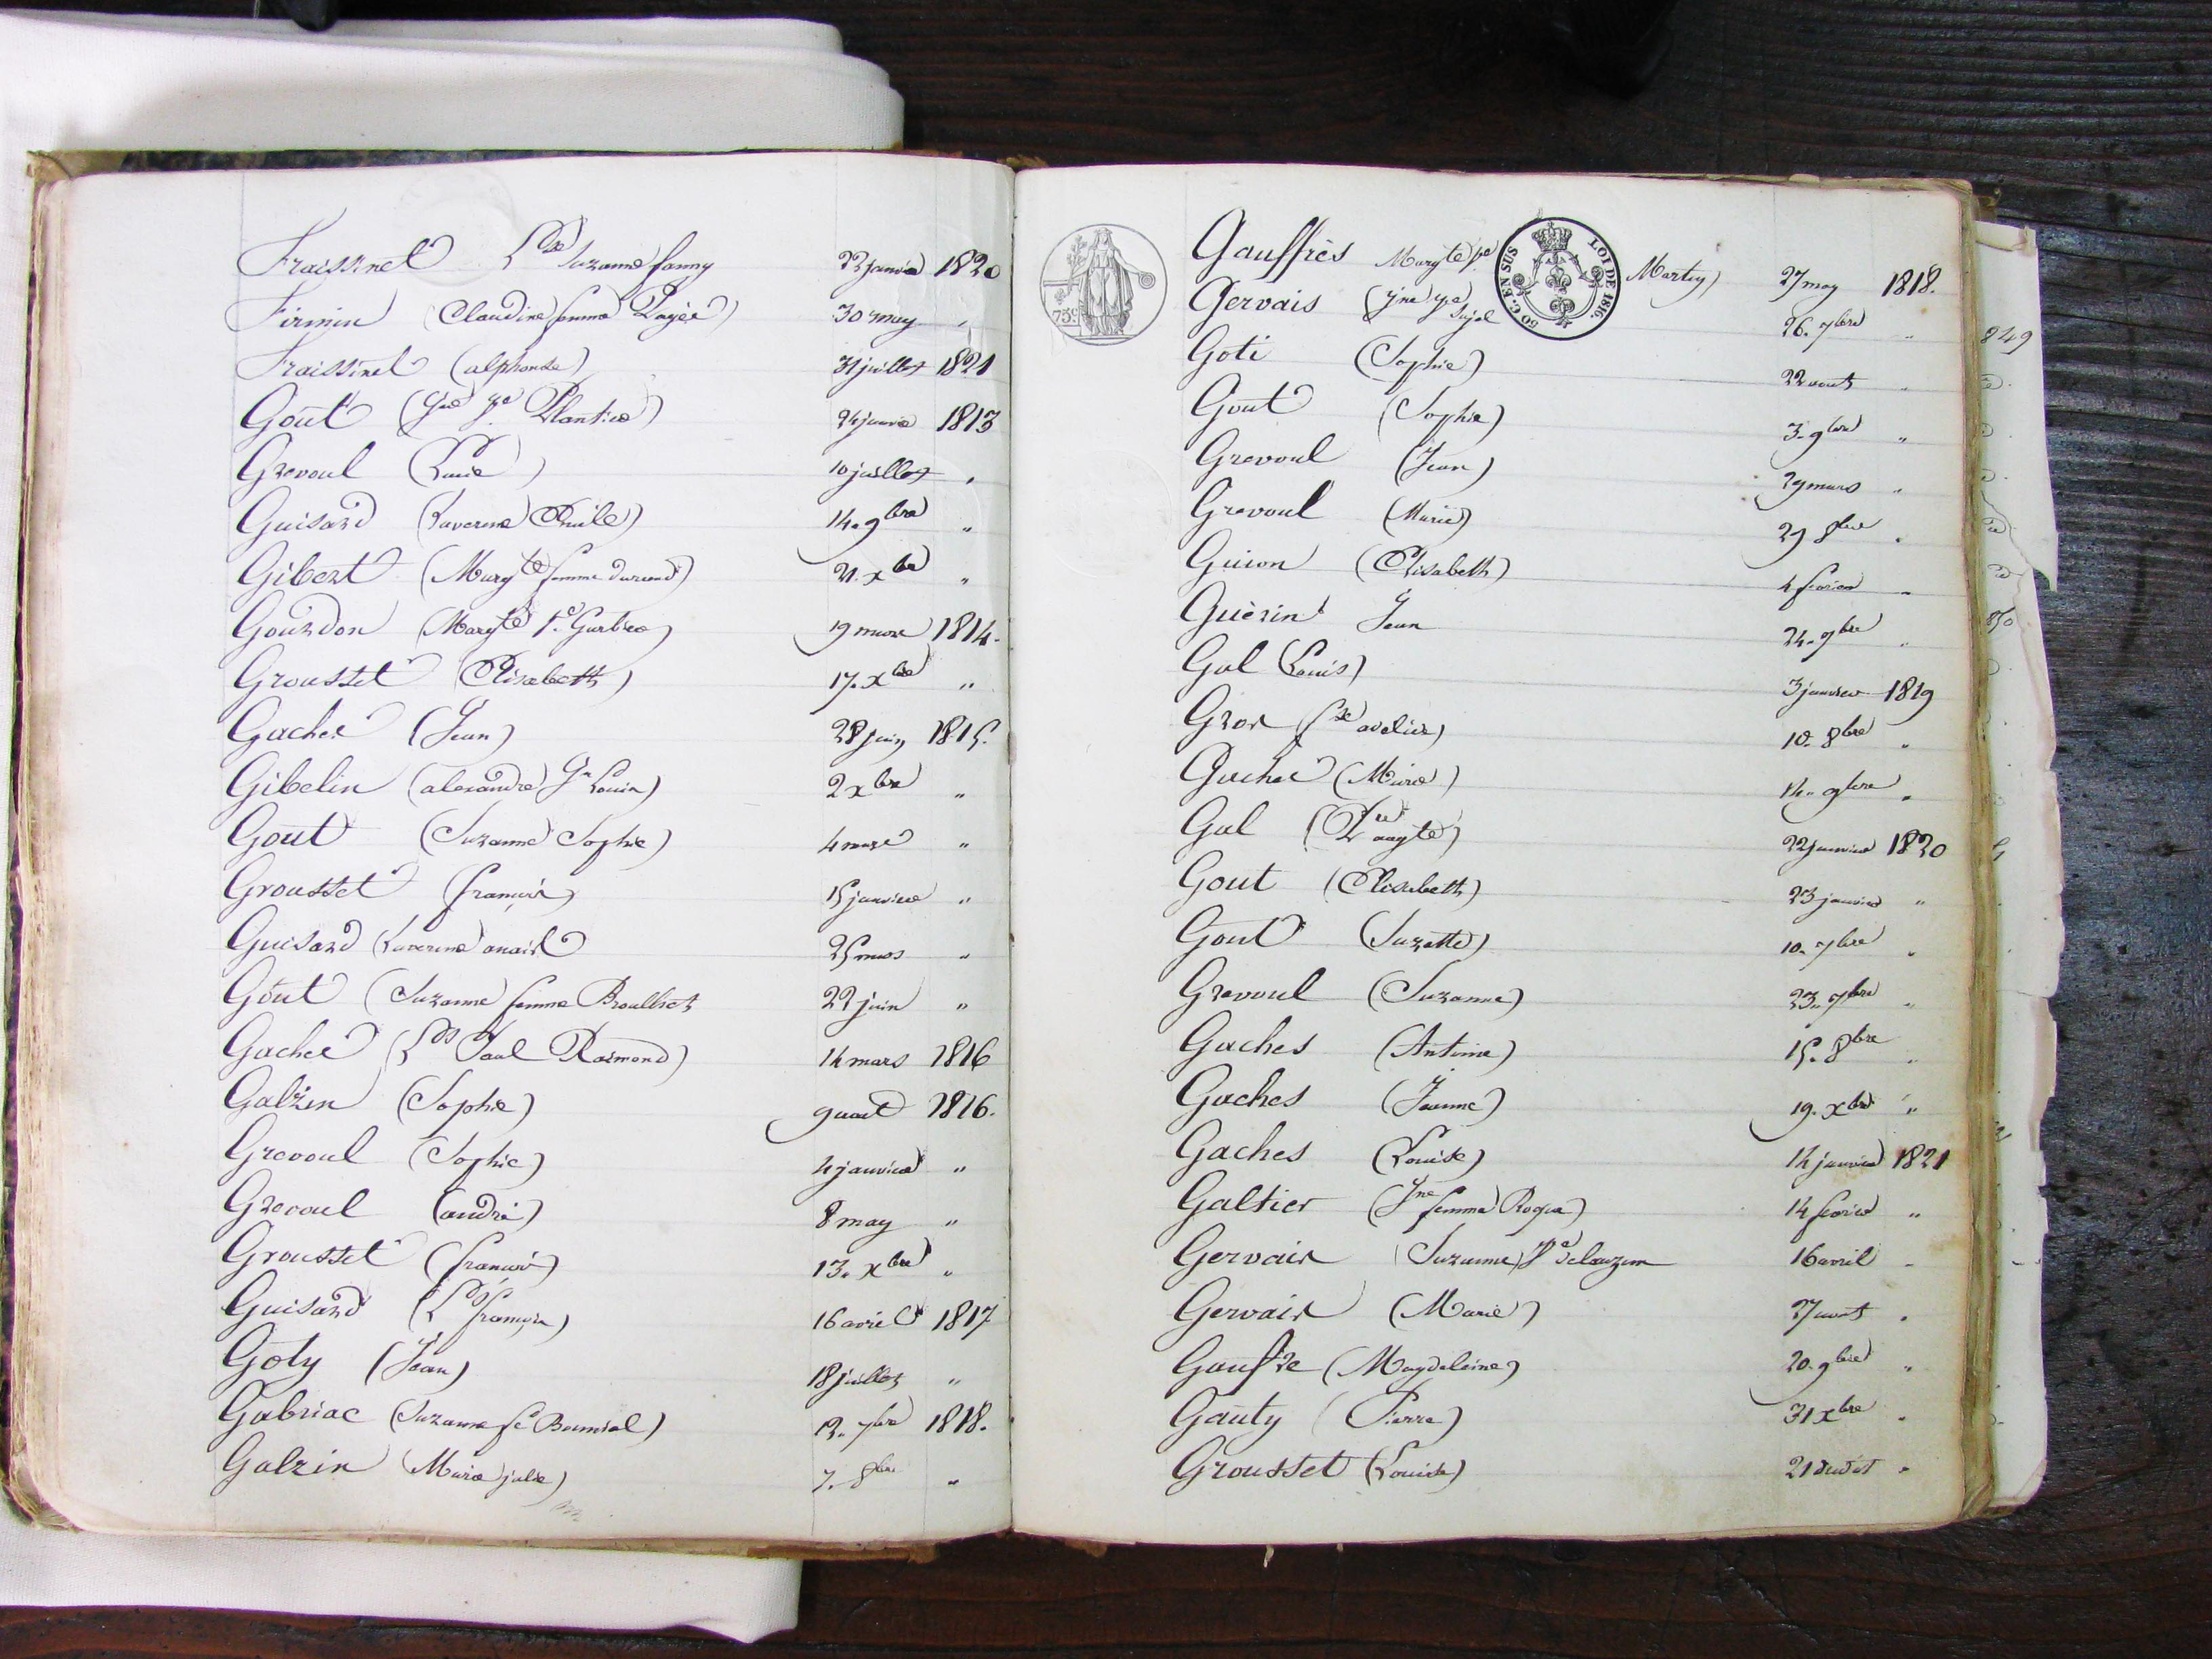 Fraissinet Lse Suzanne fanny 22 janvier 1820
Firmin (Claudine femme Pagès) 30 may "
Fraissinet (alphonse) 31 juillet 1821
Goût (Jne fe Plantier) 24 janvier 1813
Grevoul (Louis) 10 juillet "
Guisard (Laverene Emile) 14. 9bre "
Gibert (Margte femme durand) 21. Xbre "
Gourdon (Margte fe 19 mars 1814.
Grousset (Elisabeth) 17. Xbre "
Gaches (Jean) 28 juin 1815.
Gibelin (alexandre Jn Louis) 2 Xbre "
Goût (Suzanne Sophie) 4 mars "
Grousset (françois) 15 janvier "
Guisard (Laverene anaïs) 25 mars "
Goût (Suzanne) femme Broulhet 22 juin "
Gaches (Ls Paul Raimond) 14 mars 1816
Galzin (Sophie) 9 aout 1816.
Grevoul (Sophie) 4 janvier "
Grevoul (andré) 8 may "
Grousset (françois) 13. Xbre "
Guisard (Ls françois) 16 avril 1817
Goty (Jean) 18 juillet "
Gabriac (Suzanne fe 12. 7bre 1818.
Galzin (Marie julie) 7. 8bre "
Gauffrès Margte fe Martin) 27 may 1818.
Gervais (Jne fe 26. 7bre "
Goti (Sophie) 22 aout "
Goût (Sophie) 3. 9bre "
Grevoul (Jean) 29 mars "
Grevoul (Marie) 29 8bre "
Guion (Elisabeth) 4 fevrier "
Guèrin Jean 24. 7bre "
Gal (Louis) 3 janvier 1819
Gros (fse adeline) 10. 8bre "
Gaches (Marie) 14. 9bre "
Gal (Margte) 22 janvier 1820
Gout (Elisabeth) 23 janvier "
Gout (Suzette) 10. 7bre "
Grevoul (Suzanne) 23. 7bre "
Gaches (Antoine) 15. 8bre "
Gaches (Jeanne) 19. Xbre "
Gaches (Louise) 14 janvier 1821
Galtier (Jne femme Roque) 14 fevrier "
Gervais (Suzanne) fe delauzun 16 avril "
Gervais (Marie) 27 aout "
Gaufre (Magdeleine) 20. 9bre "
Gauty (Pierre) 31 Xbre "
Grousset (Louise) 21 "
73c
50 C. EN SUS
LOI DE 1816.
849